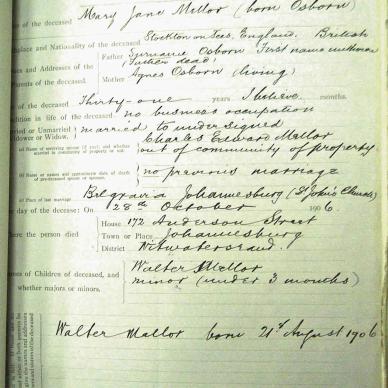 of the deceased Mary Jane Mellor (born Osborn)
Stockton on Tees, England. British
place and Nationality of the deceased
Father Surname Osborn First name unknown
es and Addresses of the (Father dead)
Parents of the deceased Mother Agnes Osborn (living)
of the deceased Thirty-one years I believe months.
ndition in life of the deceased no business occupation
ried or Unmarried married to undersigned
idower or Widow. (a) Name of surviving spouse (if any), and whether married in community of property or not. Charles Edward Mellor
out of community of property
(b) Name or names and approximate date of death of pre-deceased spouse or spouses. no previous marriage
(c) Place of last marriage Belgravia Johannesburg (St John's Church)
he day of the decease: On 28th October 1906
House 172 Anderson Street
here the person died Town or Place Johannesburg
District Witwatersrand.
mes of Children of deceased, and Walter Mellor
whether majors or minors. minor (under 3 months)
Walter Mellor born 21st August 1906